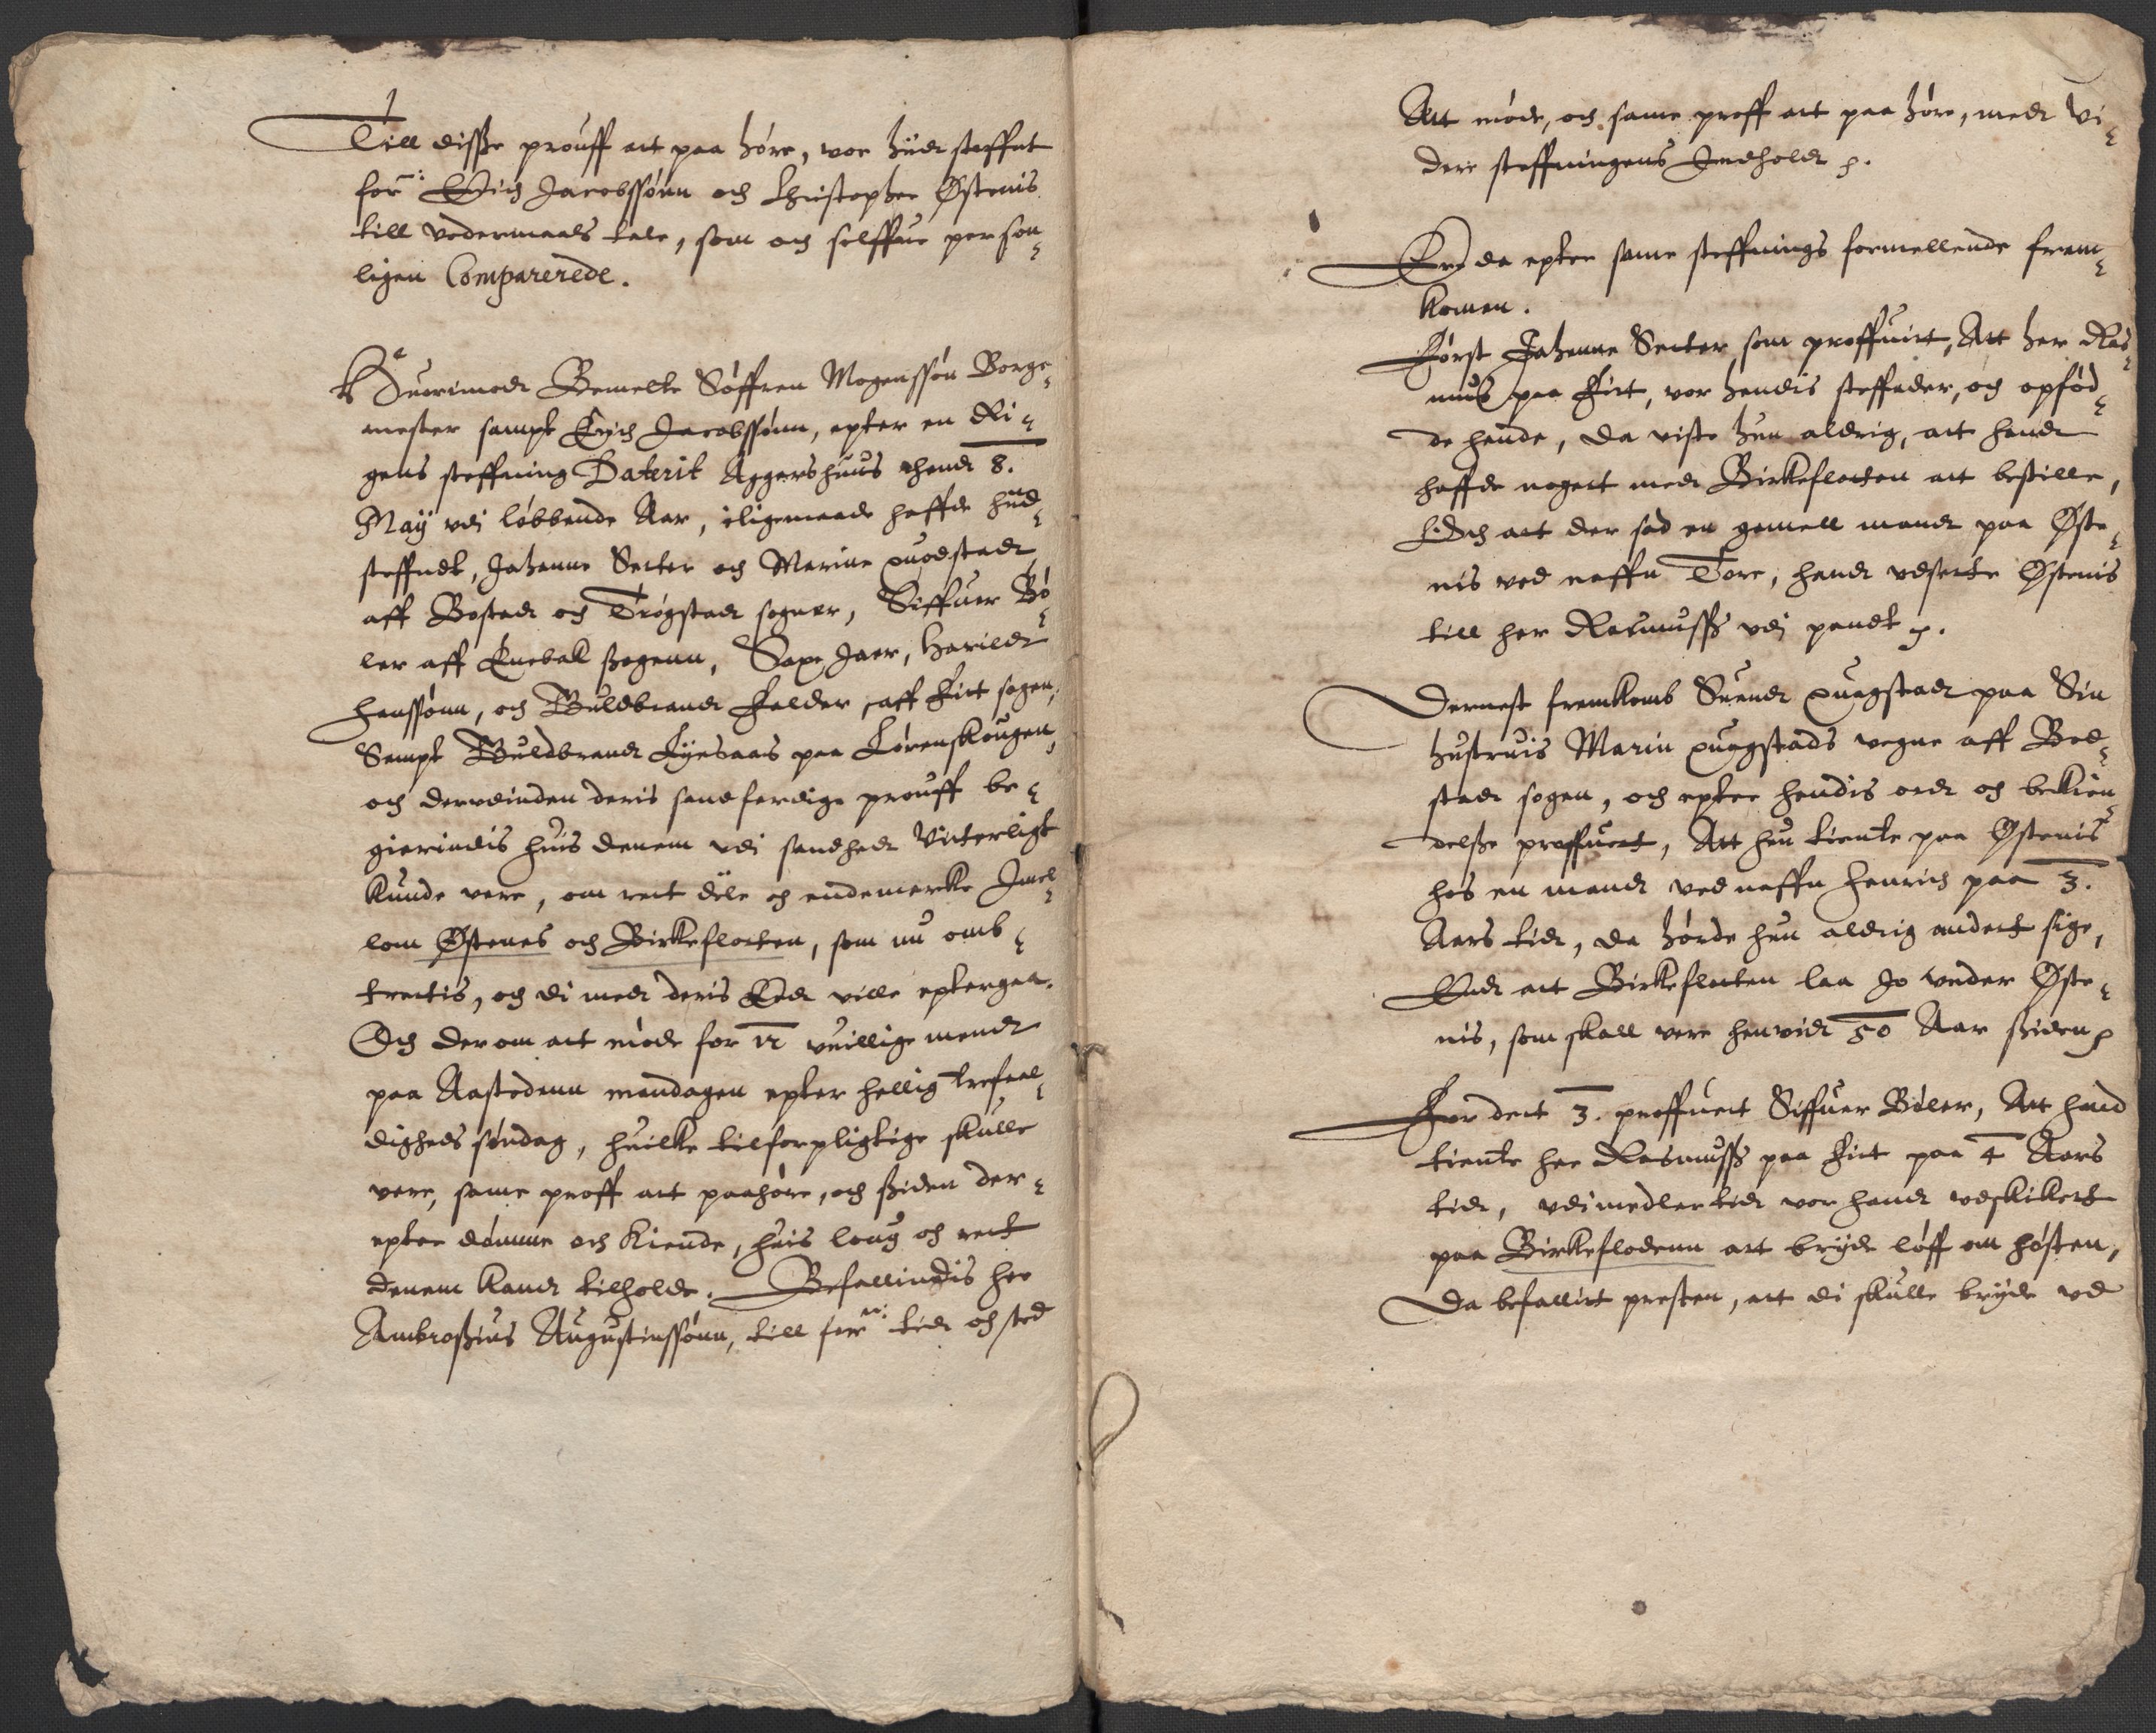 Till disse prouff att paa høre, vor hiidt steffnt
forᷠ: Erich Jacobssønn och Christopher Østenis
till vedermaals tale, som och selffue person¬
ligen Comparerede.
Huorimodt Bemelte Søffren Mogenssøn Borge¬
mester sampt Erich Jacobssønn, epter en Ri¬
gens steffning Daterit Aggershuus thend 8.
Maÿ vdi løbbende Aar, iligemaade haffde hid¬
steffndt, Johanne Secter och Marine quogstadt
aff Bostad och Trøgstad sogner, Siffuer Bø¬
ler aff Enebak ssogenn, Saxe Jaer, Harildt
Hanssønn, och Guldbrandt Felder, aff Fiet sogen,
Sampt Guldbrandt Lÿesaas paa Lørenskougen,
och der vdinden deris sandferdige prouff be¬
gierindis huis denem vdi sandhedt Vitterligt
kunde vere, om rett dele och endemercke Jmel¬
lom Østenes och Birkeflotten, som nu omb¬
trettis, och di medt deris Eedt ville eptergaa.
Och der om att møde for 12 vuillige mendt
paa Aastedenn mandagen epter hellig trefaal¬
digheds søndag, huilke tilforpligtige skulle
vere, same proff att paahøre, och ssiden der¬
epter dømme och kiende, huis loug och rett
denem kandt tilholde. Befallindis her
Ambrossius Augustinssønn, till forᷠ: tidt och sted
Att møde, och same proff att paa høre, medt Vi¬
dere steffningens Jndholdt p.
Er da epter same steffnings formellende frem¬
komen.
Først Johanne Secter som proffuitt, Att her Ras¬
mus paa Fiet, vor hendis steffader, och opfød¬
de hende, da viste hun aldrig, att handt
haffde nogett medt Birkeflotten att bestille,
Och att der sad en gamell mandt paa Øste¬
nis ved naffn Tore, handt vdsette Østenis
till her Rasmuss vdi pandt p.
Dernest fremkomb Suendt quagstadt paa Sin
hustruis Marin quagstads vegne aff Bod¬
stadt sogen, och epter hendis ord och bekien¬
delsse proffuett, Att hun tiente paa Østenis
hos en mandt ved naffn Henrich paa 3.
Aars tidt, da hørde hun aldrig andett sige,
End att Birkeflotten laa Jo vnder Øste¬
nis, som skall vere henvidt 50 Aar ssiden p
For dett 3. proffuett Siffuer Bøler, Att hand
tiente her Rasmuss paa Fiet paa 4 Aars
tidt, vdimedlertidt vor handt vdskikett
paa Birkeflodenn att brÿde løff om høsten,
Da befallitt presten, att di skulle brÿde ved